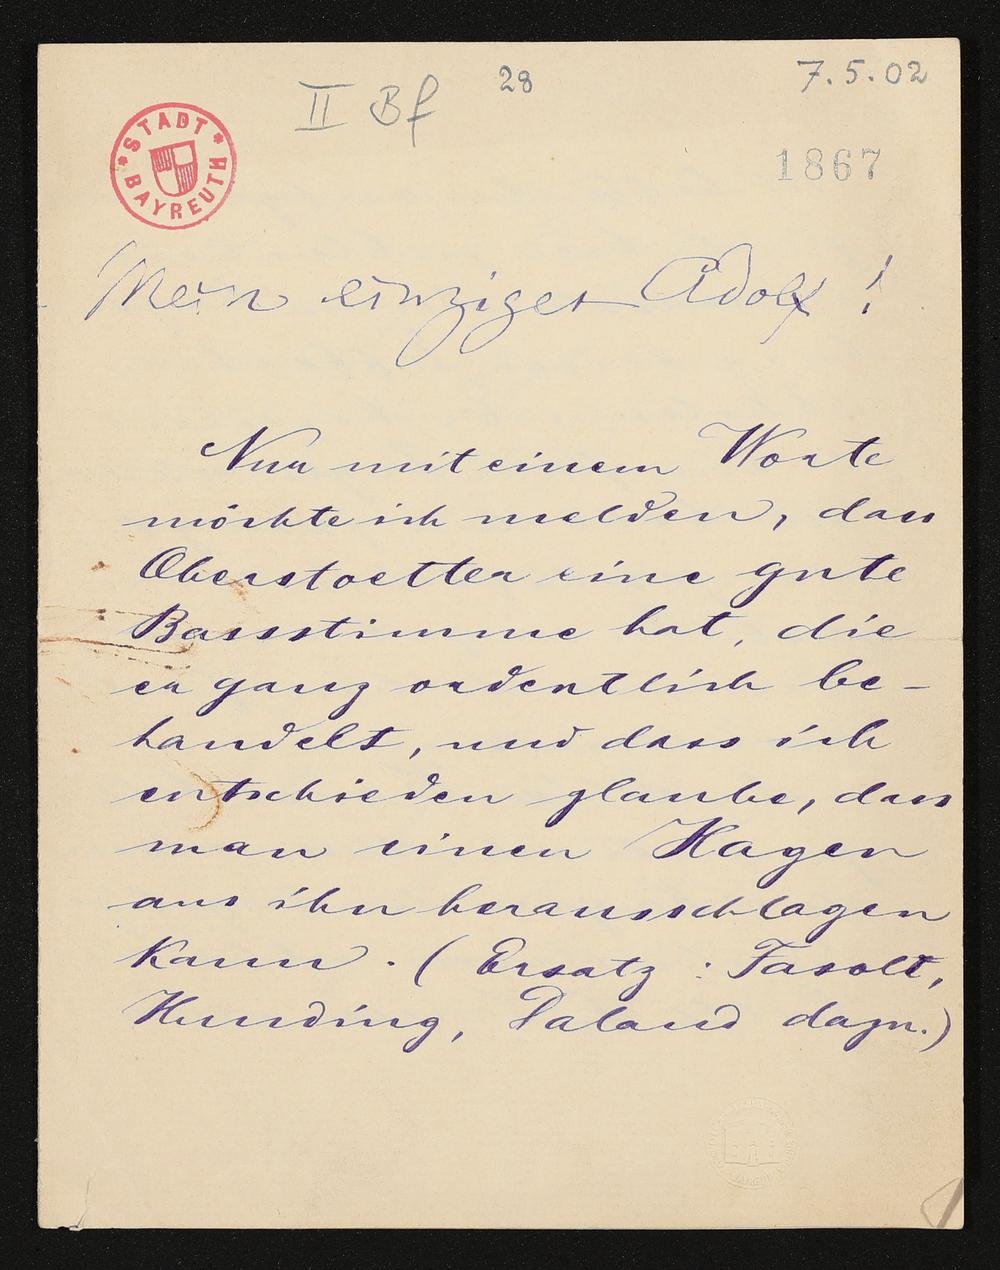 II Bf 28 7.5.02
STADT BAYREUTH
1867
Mein einziger Adolf!
Nur mit einem Worte
möchte ich melden, dass
Oberstoetter eine gute
Bassstimme hat, die
er ganz ordentlich be-
handelt, und dass ich
entschieden glaube, dass
man einen Hagen
aus ihn herausschlagen
kann. (Ersatz: Fasolt,
Hunding, Daland dazu.)